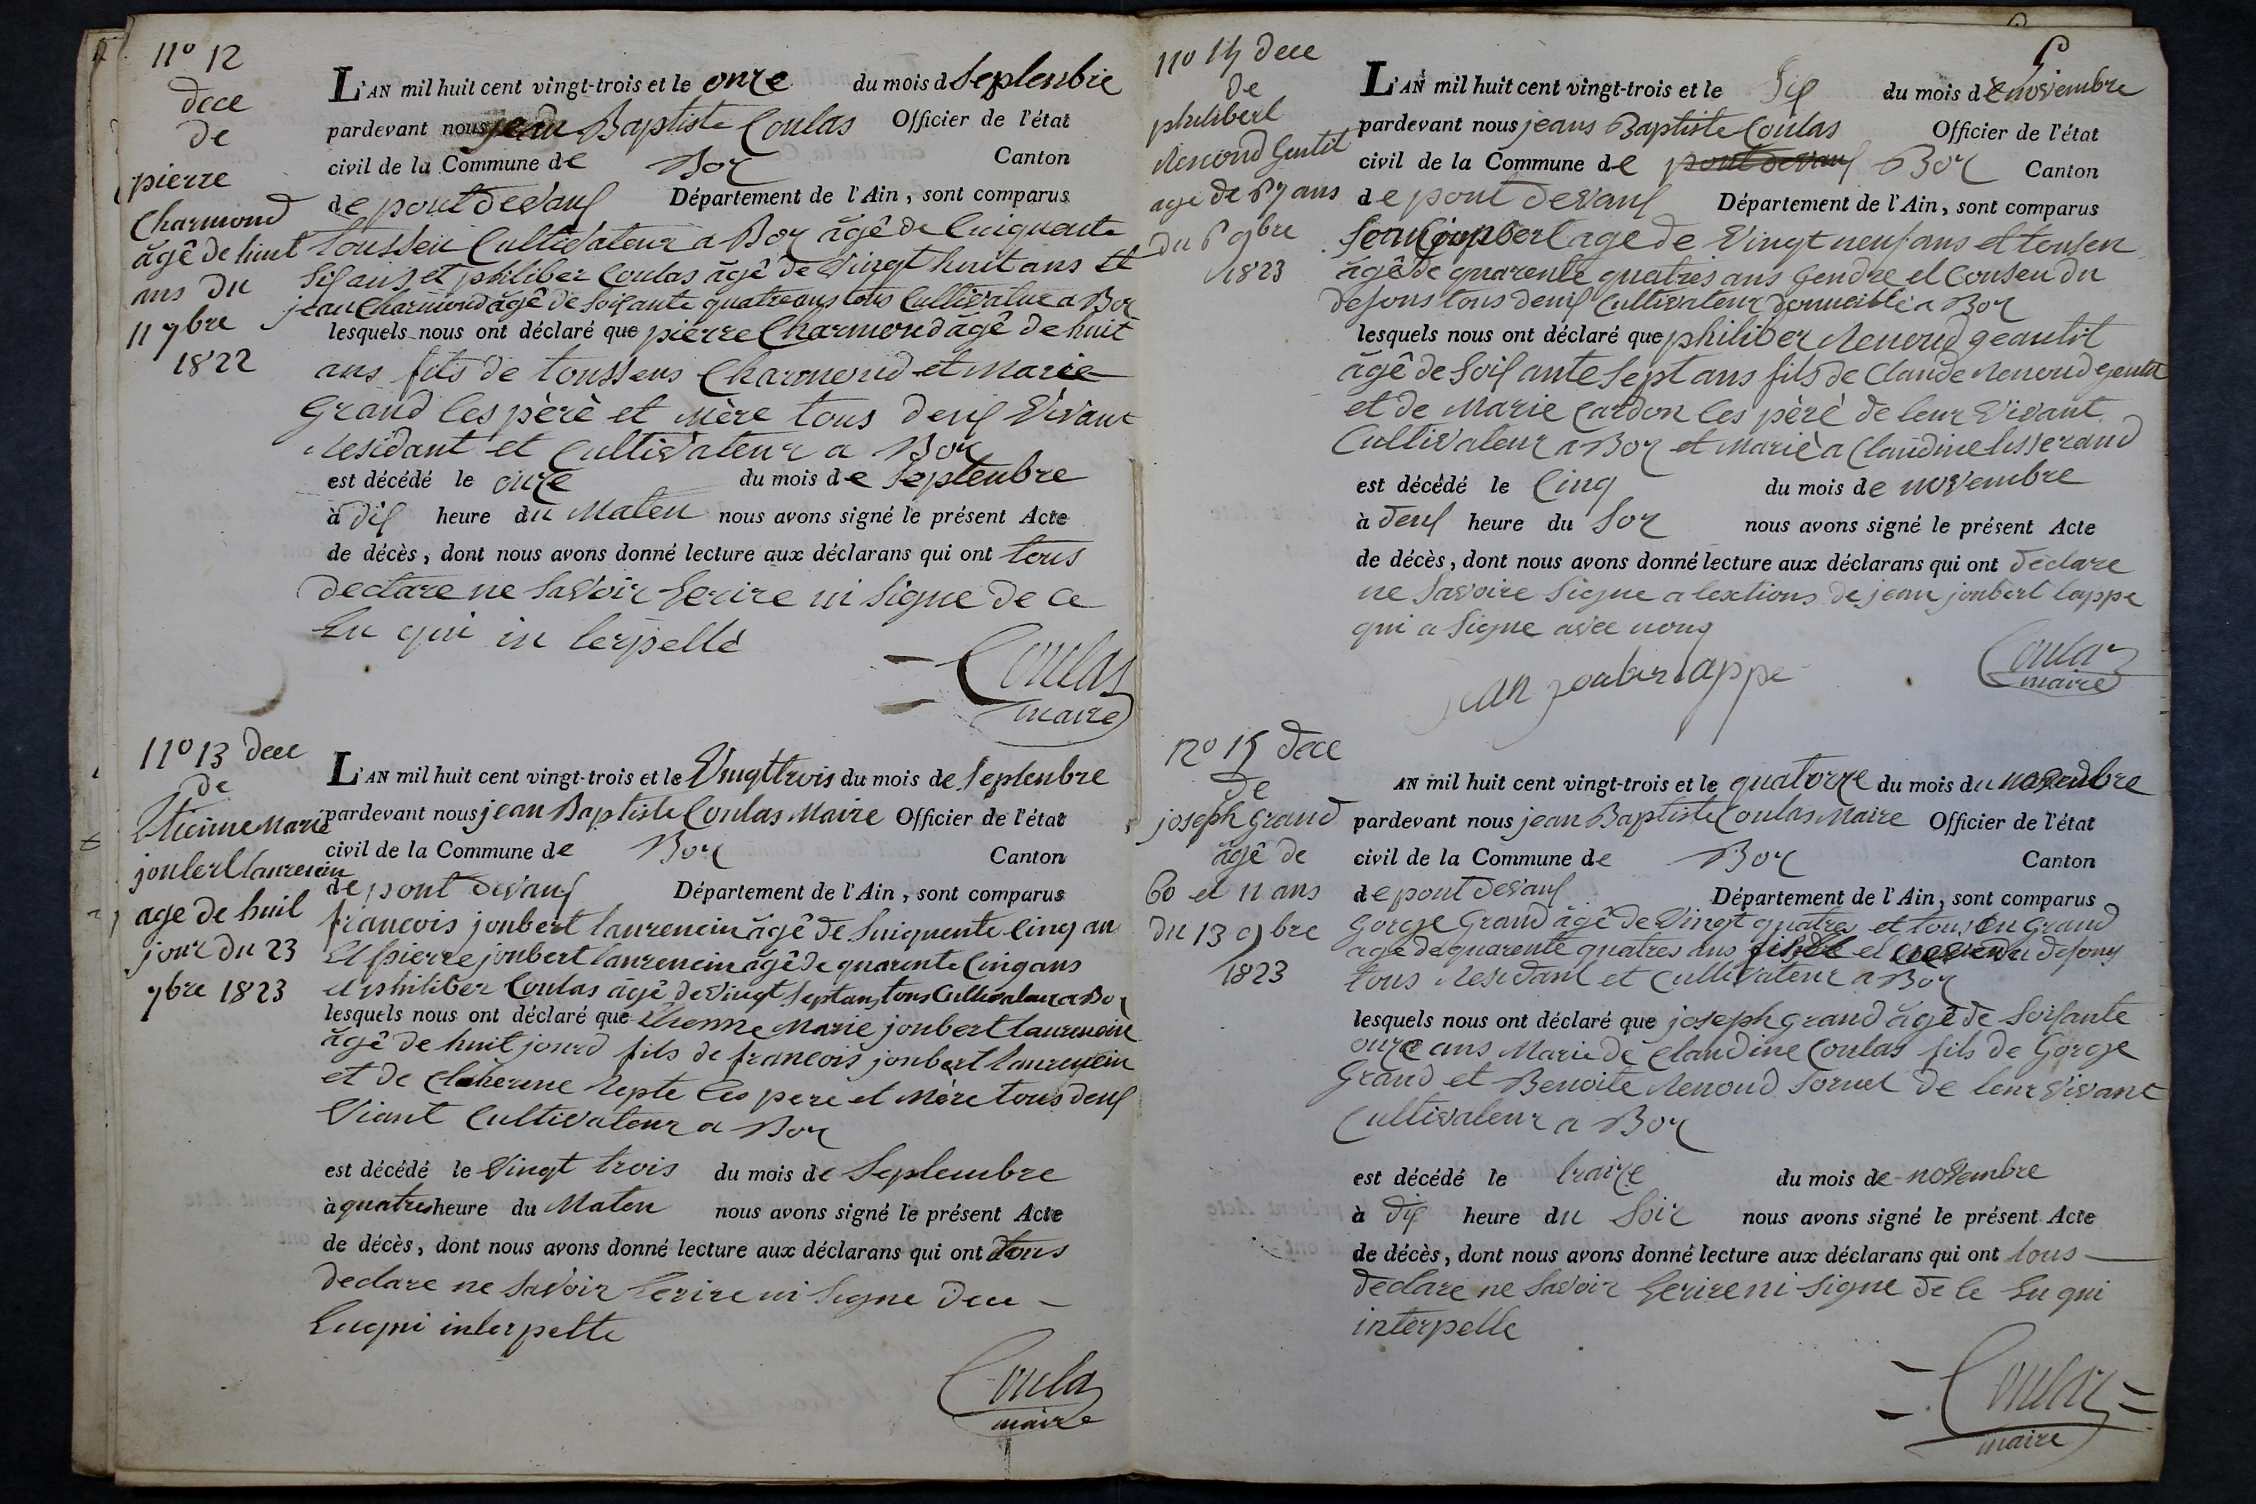 n° 12
dece
de
pierre
Charmond
âgê de huit
ans du
11 7bre
1822
L'AN mil huit cent vingt-trois et le onze du mois d Septenbre
pardevant nous jean Baptiste Coulas Officier de l'état
civil de la Commune de Boz Canton
de pont devaux Département de l'Ain, sont comparus
toussen Cultivateur a Boz âgê de Cinquante
Six ans et philiber Coulas âgê de Vingt huit ans et
jean Charmond âgê de Soixante quatre ans tous Cultivateur a Boz
lesquels nous ont déclaré que pierre Charmond âgê de huit
ans fils de toussens Charmond et Marie
Grand les père et mère tous deux Vivant
residant et Cultivateur a Boz
est décédé le onze du mois de Septenbre
à dix heure du Maten nous avons signé le présent Acte
de décès, dont nous avons donné lecture aux déclarans qui ont tous
declare ne Savoir Écrire ni Signe de ce
Eu qui in terpellé
Coulas
maire
n° 13 dece
de
Etienne Marie
joubert laurencin
age de huit
jour du 23
7bre 1823
L'AN mil huit cent vingt-trois et le Vingt trois du mois de Septenbre
pardevant nous jean Baptiste Coulas Maire Officier de l'état
civil de la Commune de Boz Canton
de pont devaux Département de l'Ain, sont comparus
francois joubert laurencin âgê de Sinquente Cinq an
Et pierre joubert laurencin âgê de quarente Cinq ans
et philiber Coulas âgê de Vingt Sept ans tous Cultivateur a Boz
lesquels nous ont déclaré que Etienne Marie joubert laurencin
âgê de huit jourd fils de francois joubert laurencin
et de Catherene les père et Mère tous deux
Viant Cultivateur a Boz
est décédé le Vingt trois du mois de Septembre
à quatres heure du Maten nous avons signé le présent Acte
de décès, dont nous avons donné lecture aux déclarans qui ont tous
declare ne Savoir Écrire ni Signe dece
Eu qui interpelle
Coulas
maire
n° 14 dece
de
philibert
Renoud Gentit
age de 67 ans
du 6 9bre
1823
L'AN mil huit cent vingt-trois et le Six du mois de novembre
pardevant nous jeans Baptiste Coulas Officier de l'état
civil de la Commune de pont devaux Boz Canton
de pont devaux Département de l'Ain, sont comparus
jean joupbert age de Vingt neuf ans et tousen
âgê de quarente quatres ans Gendre et Cousen du
defons tous deux Cultivateur a Boz
lesquels nous ont déclaré que philiber Renoud geantit
âgê de Soix ante Sept ans fils de Claude Renoud gentit
et de Marie Cardon les père de leur Vivant
Cultivateur a Boz et Mariè a Claudine tisserand
est décédé le Cinq du mois de novembre
à deux heure du Soz nous avons signé le présent Acte
de décès, dont nous avons donné lecture aux déclarans qui ont dèclare
ne Savoire Signe a lextions de jean joubert lappe
qui a Signe avec nous
jean jouber lappe
Coulas
maire
n° 15 dece
de
joseph Grand
âgê de
60 et 11 ans
du 13 9bre
1823
AN mil huit cent vingt-trois et le quatorze du mois du novenbre
pardevant nous jean Baptiste Coulas Maire Officier de l'état
civil de la Commune de Boz Canton
de pont devaux Département de l'Ain, sont comparus
Gorge Grand âgê de Vingt quatres et tousen Grand
age de quarente quatres ans fils et du defons
tous Residant et Cultivateur a Boz
lesquels nous ont déclaré que joseph grand âgê de Soixante
onze ans Marie de Claudine Coulas fils de Gorge
Grand et Benoite Renoud Sornet de leur vivant
Cultivateur a Boz
est décédé le traize du mois de novembre
à dix heure du Soir nous avons signé le présent Acte
de décès, dont nous avons donné lecture aux déclarans qui ont tous
dèclare ne Savoir Écrire ni Signe de Ce Eu qui
interpelle
Coulas
maire